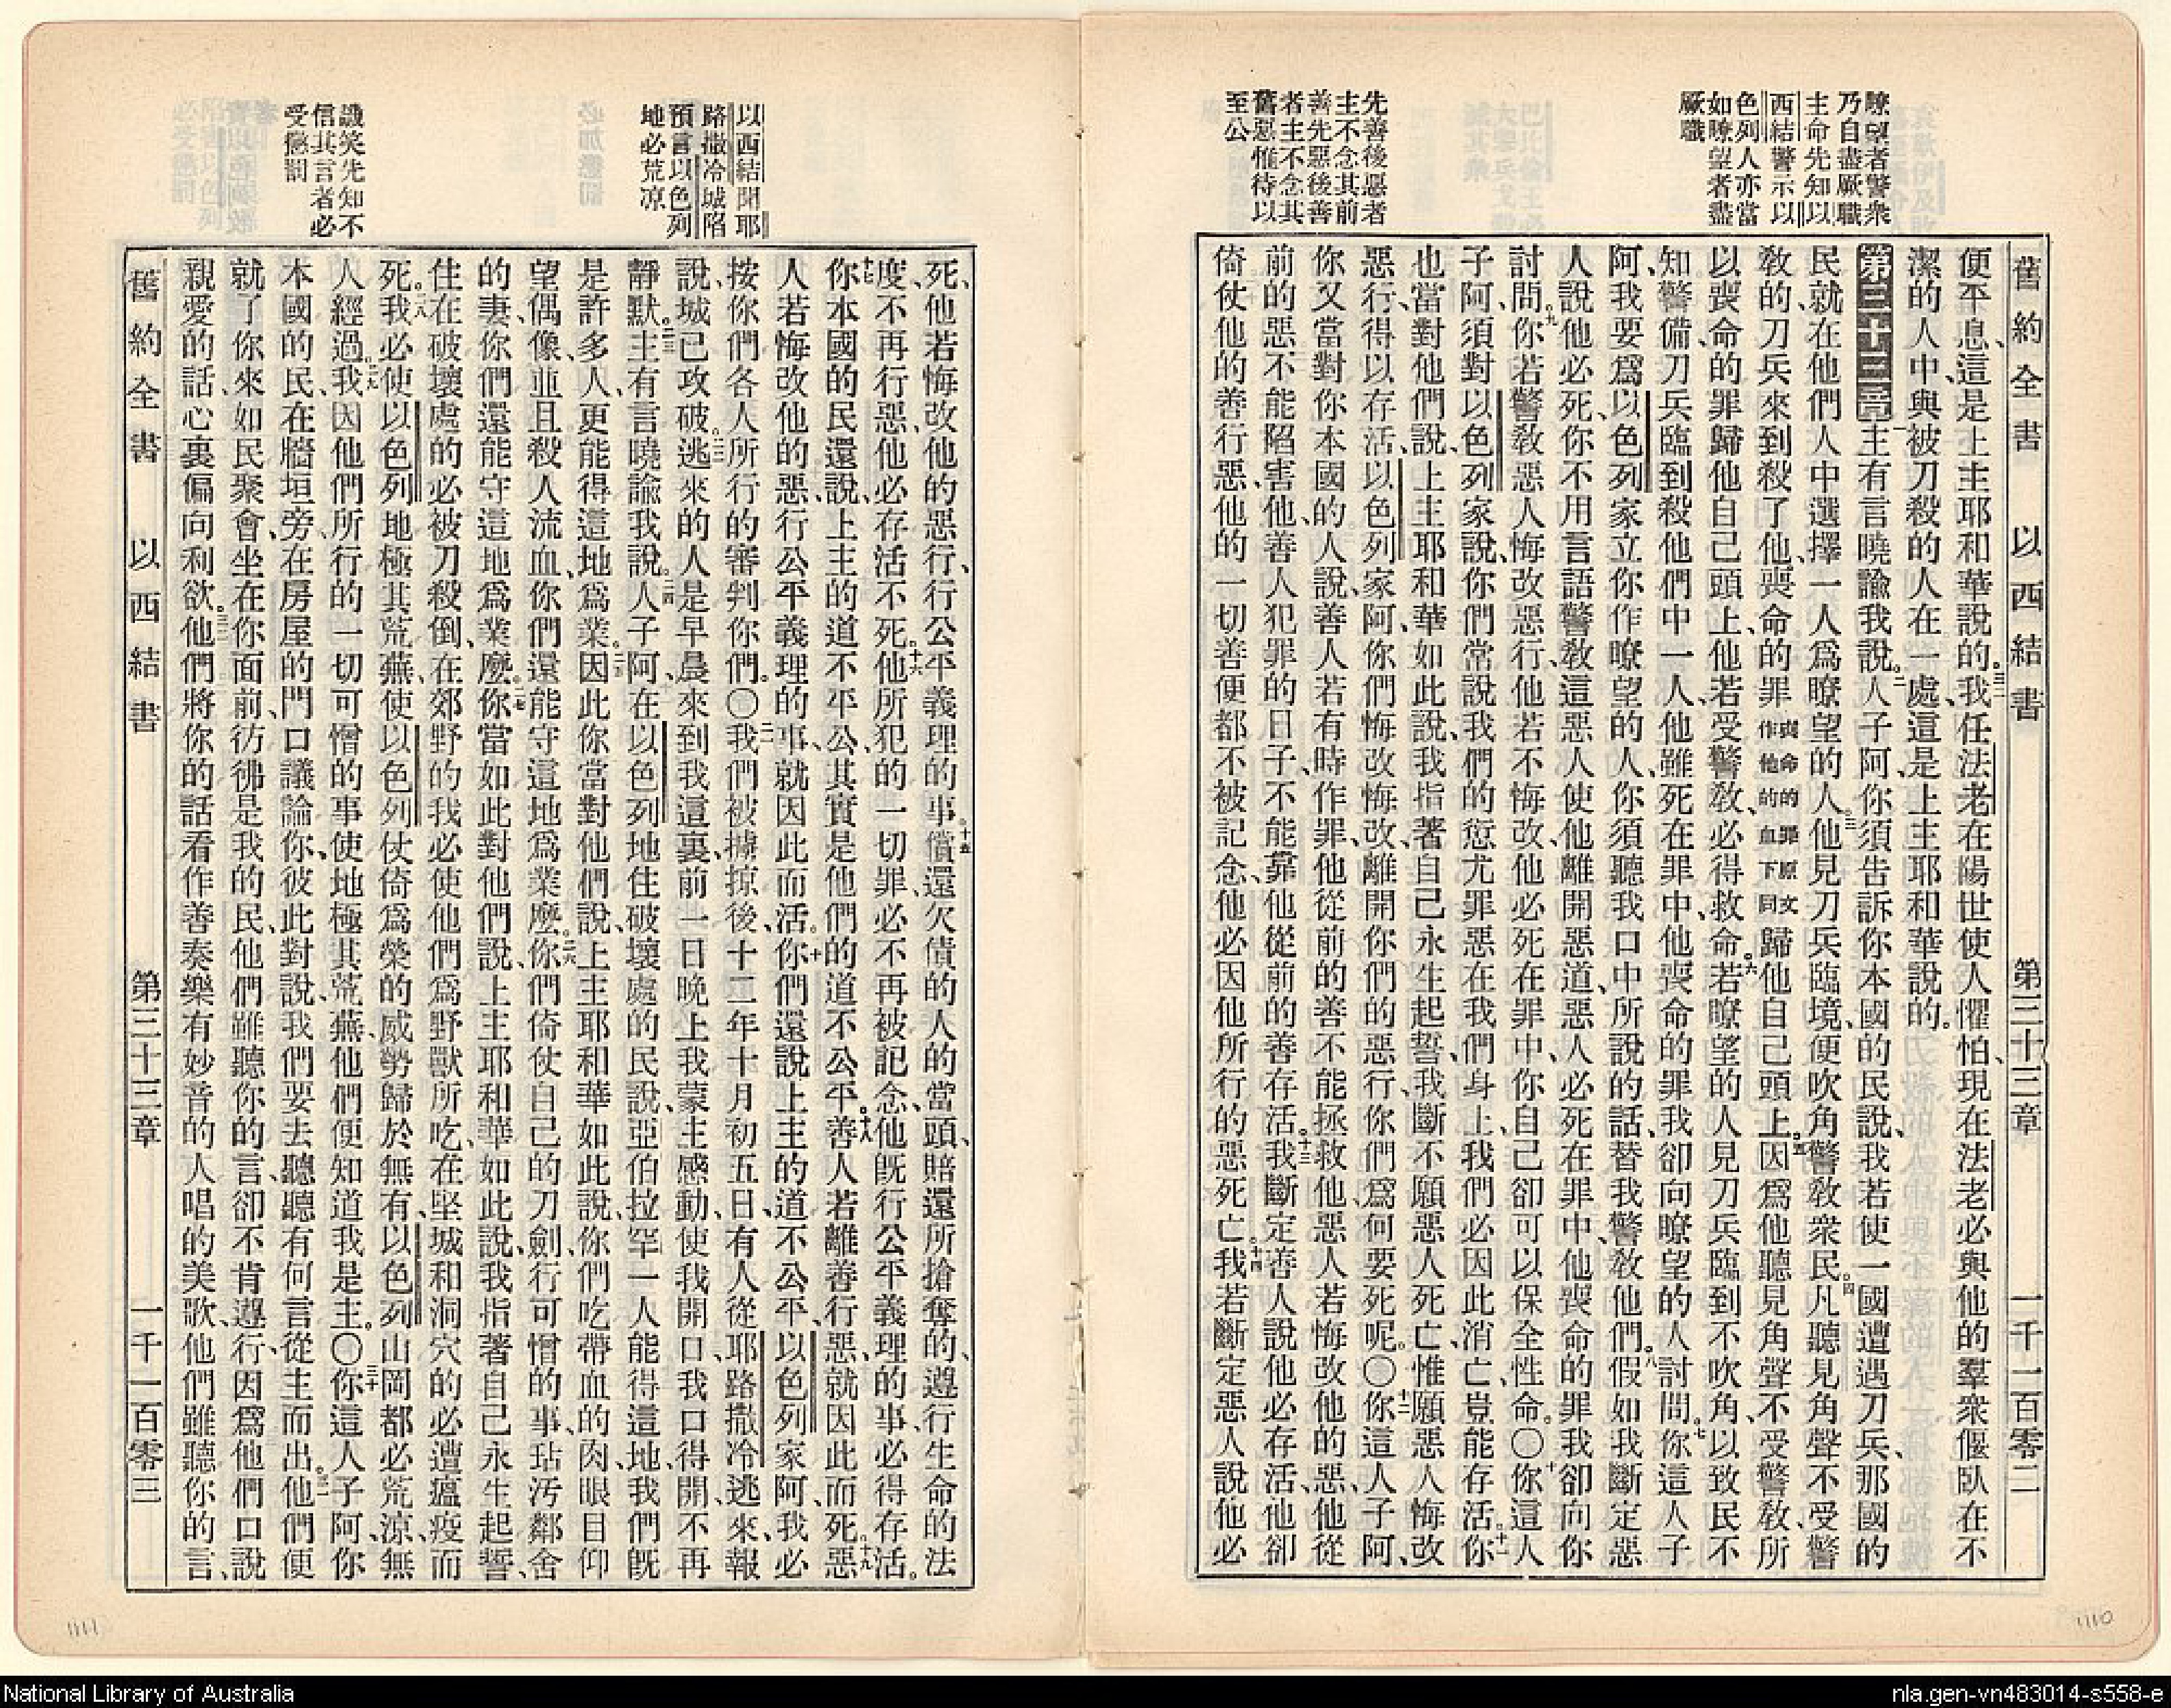 舊約全書 以西結書 第三十三章 一千一百零二
瞭望者警衆
乃自盡厥職
主命先知以
西結警示以
色列人亦當
如瞭望者盡
厥職
先善後惡者
主不念其前
善先惡後善
者主不念其
舊惡惟待以
至公
便平息、這是上主耶和華說的。三二我任法老在陽世使人懼怕、現在法老必與他的羣衆偃臥在不
潔的人中、與被刀殺的人在一處、這是上主耶和華說的。
第三十三章一主有言曉諭我說。二人子阿、你須告訴你本國的民說、我若使一國遭遇刀兵、那國的
民、就在他們人中選擇一人爲瞭望的人。三他見刀兵臨境、便吹角警敎衆民。四凡聽見角聲不受警
敎的、刀兵來到殺了他、喪命的罪喪命的罪原文作他的血下同歸他自己頭上。五因爲他聽見角聲、不受警敎、所
以喪命的罪歸他自己頭上、他若受警敎、必得救命。六若瞭望的人見刀兵臨到不吹角、以致民不
知警備、刀兵臨到殺他們中一人、他雖死在罪中、他喪命的罪我卻向瞭望的人討問。七你這人子
阿、我要爲以色列家立你作瞭望的人、你須聽我口中所說的話、替我警敎他們。八假如我斷定惡
人說他必死、你不用言語警敎這惡人、使他離開惡道、惡人必死在罪中、他喪命的罪我卻向你
討問。九你若警敎惡人悔改惡行、他若不悔改、他必死在罪中、你自己卻可以保全性命。〇十你這人
子阿、須對以色列家說、你們常說我們的愆尤罪惡在我們身上、我們必因此消亡、豈能存活。十一你
也當對他們說、上主耶和華如此說、我指著自己永生起誓、我斷不願惡人死亡、惟願惡人悔改
惡行、得以存活、以色列家阿、你們悔改悔改、離開你們的惡行、你們爲何要死呢。〇十二你這人子阿、
你又當對你本國的人說、善人若有時作罪、他從前的善不能拯救他、惡人若悔改他的惡、他從
前的惡不能陷害他、善人犯罪的日子、不能靠他從前的善存活。十三我斷定善人說他必存活、他卻
倚仗他的善行惡、他的一切善便都不被記念、他必因他所行的惡死亡。十四我若斷定惡人說他必
以西結聞耶
路撒冷城陷
預言以色列
地必荒凉
譏笑先知不
信其言者必
受懲罰
死、他若悔改他的惡行、行公平義理的事。十五償還欠債的人的當頭、賠還所搶奪的、遵行生命的法
度、不再行惡、他必存活不死。十六他所犯的一切罪必不再被記念、他旣行公平義理的事、必得存活。
十七你本國的民還說、上主的道不平公、其實是他們的道不公平。十八善人若離善行惡、就因此而死。十九惡
人若悔改他的惡、行公平義理的事、就因此而活。二十你們還說上主的道不公平、以色列家阿、我必
按你們各人所行的審判你們。〇二一我們被擄掠後、十二年十月初五日、有人從耶路撒冷逃來、報
說、城已攻破。二二逃來的人是早晨來到我這裏、前一日晚上我蒙主感動、使我開口、我口得開、不再
靜默。二三主有言曉諭我說。二四人子阿、在以色列地住破壞處的民說、亞伯拉罕一人能得這地、我們旣
是許多人、更能得這地爲業。二五因此你當對他們說、上主耶和華如此說、你們吃帶血的肉、眼目仰
望偶像、並且殺人流血、你們還能守這地爲業麼。二六你們倚仗自己的刀劍、行可憎的事、玷汚鄰舍
的妻、你們還能守這地爲業麼。二七你當如此對他們說、上主耶和華如此說、我指著自己永生起誓、
住在破壞處的必被刀殺倒、在郊野的我必使他們爲野獸所吃、在堅城和洞穴的必遭瘟疫而
死。二八我必使以色列地極其荒蕪、使以色列仗倚爲榮的威勢歸於無有、以色列山岡都必荒涼、無
人經過。二九我因他們所行的一切可憎的事、使地極其荒蕪、他們便知道我是主。〇三十你這人子阿、你
本國的民、在牆垣旁、在房屋的門口議論你、彼此對說、我們要去聽聽有何言從主而出。三一他們便
就了你來、如民聚會、坐在你面前、彷彿是我的民、他們雖聽你的言、卻不肯遵行、因爲他們口說
親愛的話、心裏偏向利欲。三二他們將你的話看作善奏樂有妙音的人唱的美歌、他們雖聽你的言、
舊約全書 以西結書 第三十三章 一千一百零三
1111
1110
National Library of Australia
nla.gen-vn483014-s558-e